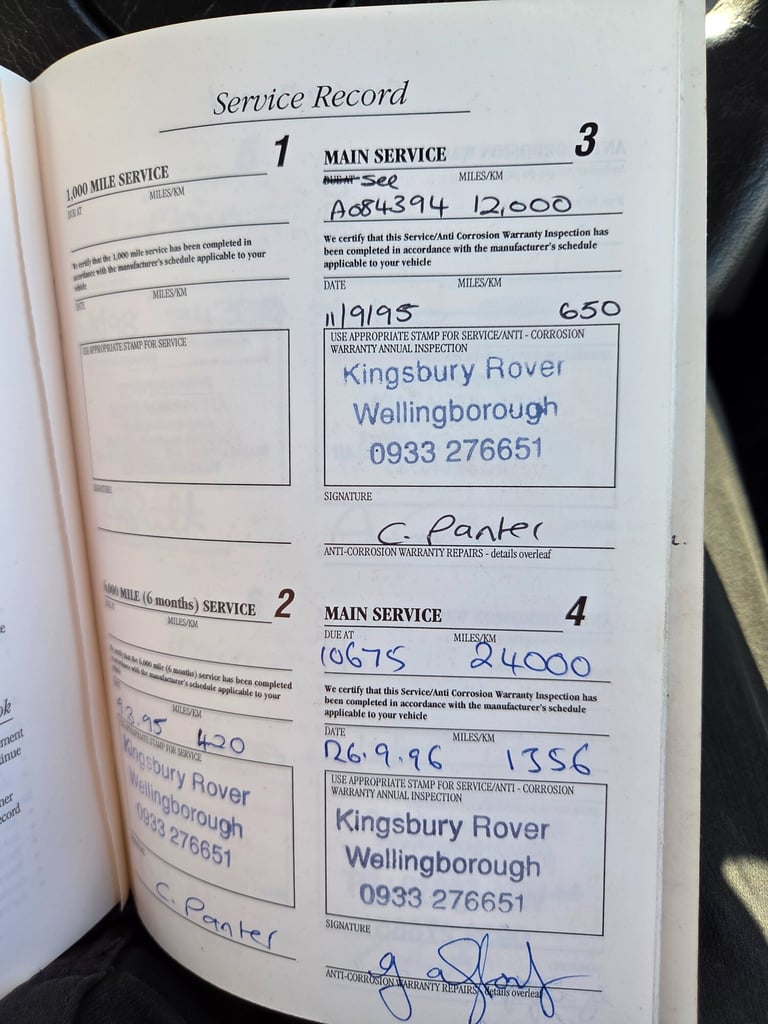 Service Record
1
1,000 MILE SERVICE
DUE AT
MILES/KM
We certify that the 1,000 mile service has been completed in
accordance with the manufacturer's schedule applicable to your
vehicle
DATE
MILES/KM
USE APPROPRIATE STAMP FOR SERVICE
SIGNATURE
6,000 MILE (6 months) SERVICE 2
MILES/KM
We certify that the 6,000 mile (6 months) service has been completed
in accordance with the manufacturer's schedule applicable to your
MILES/KM
93.95 420
APPROPRIATE STAMP FOR SERVICE
Kingsbury Rover
Wellingborough
0933 276651
C. Panter
3
MAIN SERVICE
DUE AT See
MILES/KM
A084394 12,000
We certify that this Service/Anti Corrosion Warranty Inspection has
been completed in accordance with the manufacturer's schedule
applicable to your vehicle
DATE
MILES/KM
11/9/95 650
USE APPROPRIATE STAMP FOR SERVICE/ANTI - CORROSION
WARRANTY ANNUAL INSPECTION
Kingsbury Rover
Wellingborough
0933 276651
SIGNATURE
C. Panter
ANTI-CORROSION WARRANTY REPAIRS - details overleaf
4
MAIN SERVICE
DUE AT
MILES/KM
10675 24000
We certify that this Service/Anti Corrosion Warranty Inspection has
been completed in accordance with the manufacturer's schedule
applicable to your vehicle
DATE
MILES/KM
26.9.96 1356
USE APPROPRIATE STAMP FOR SERVICE/ANTI - CORROSION
WARRANTY ANNUAL INSPECTION
Kingsbury Rover
Wellingborough
0933 276651
SIGNATURE
ANTI-CORROSION WARRANTY REPAIRS - details overleaf